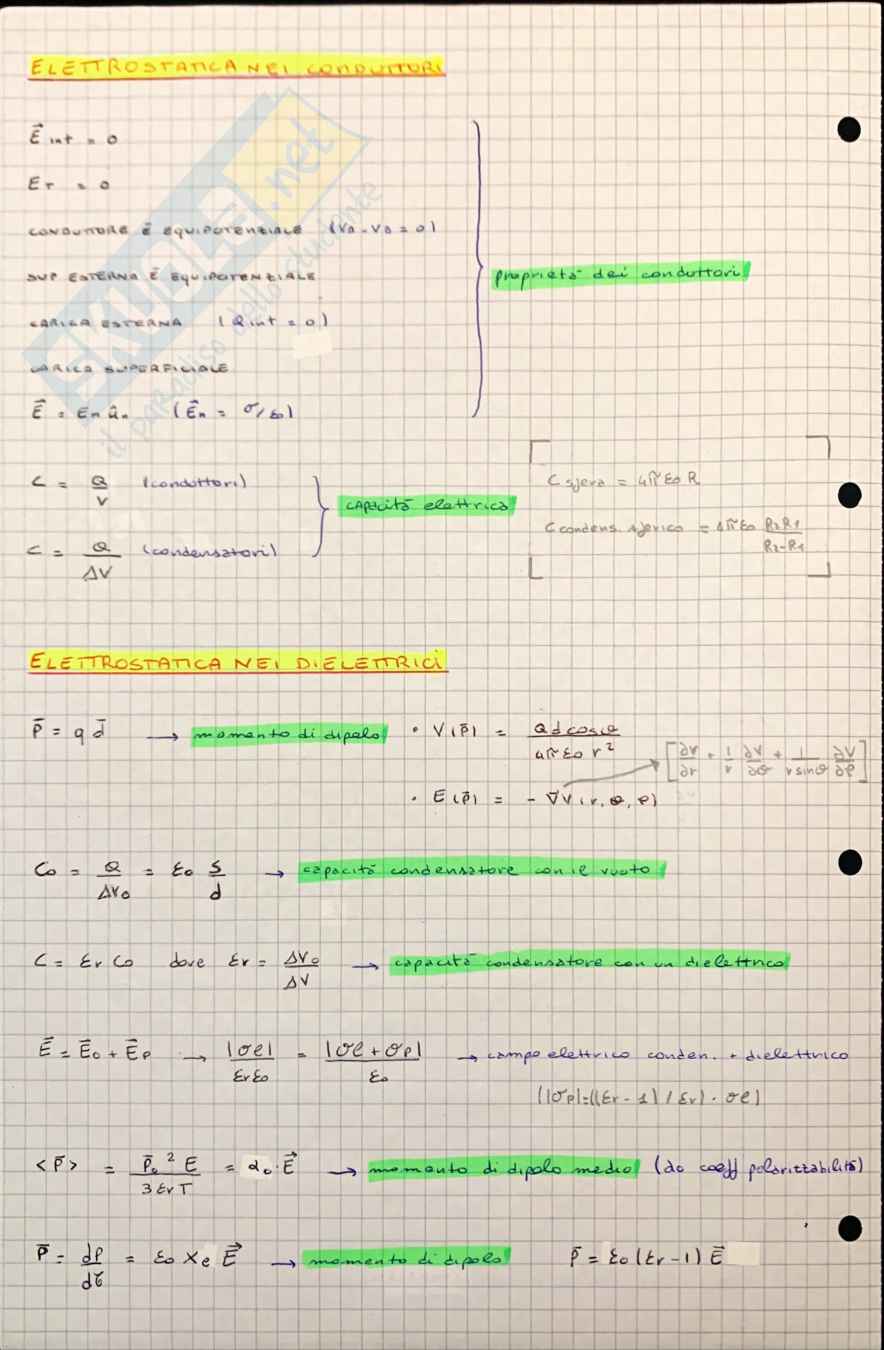 ELETTROSTATICA NEI CONDUTTORI
E⃗ int = 0
Eτ = 0
CONDUTTORE È EQUIPOTENZIALE (VA - VB = 0)
SUP ESTERNA È EQUIPOTENZIALE
proprietà dei conduttori
CARICA ESTERNA (Q int = 0)
CARICA SUPERFICIALE
E⃗ = En ûn (E⃗n = σ/ε0)
C = Q/V (conduttori)
C sfera = 4π ε0 R
capacità elettrica
C condens. sferico = 4π ε0 R2R1/R2-R1
C = Q/ΔV (condensatori)
ELETTROSTATICA NEI DIELETTRICI
p̄ = q d̄ → momento di dipolo • V(p̄) = Qd cosθ/4π ε0 r²
[∂V/∂r + 1/r ∂V/∂θ + 1/r sinθ ∂V/∂φ]
• E(p̄) = - ∇V(r, θ, φ)
C0 = Q/ΔV0 = ε0 S/d → capacità condensatore con il vuoto
C = εr C0 dove εr = ΔV0/ΔV → capacità condensatore con un dielettrico
E⃗ = E⃗0 + E⃗p → |σl|/εrε0 = |σl + σp|/ε0 → campo elettrico conden. + dielettrico
(|σp| = ((εr - 1) / εr) · σl)
<p̄> = p̄0² E/3 εr T = α0 · E⃗ → momento di dipolo medio (α0 coeff polarizzabilità)
P̄ = dp/dτ = ε0 χe E⃗ → momento di dipolo p̄ = ε0 (εr - 1) E⃗
SKUOLA.net
il paradiso dello studente